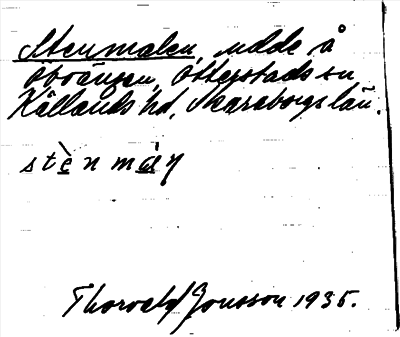 Stenmalen, udde å
Åbrängen, Otterstads sn
Kållands hd, Skaraborgs län.
Thorvald Jonsson 1935.